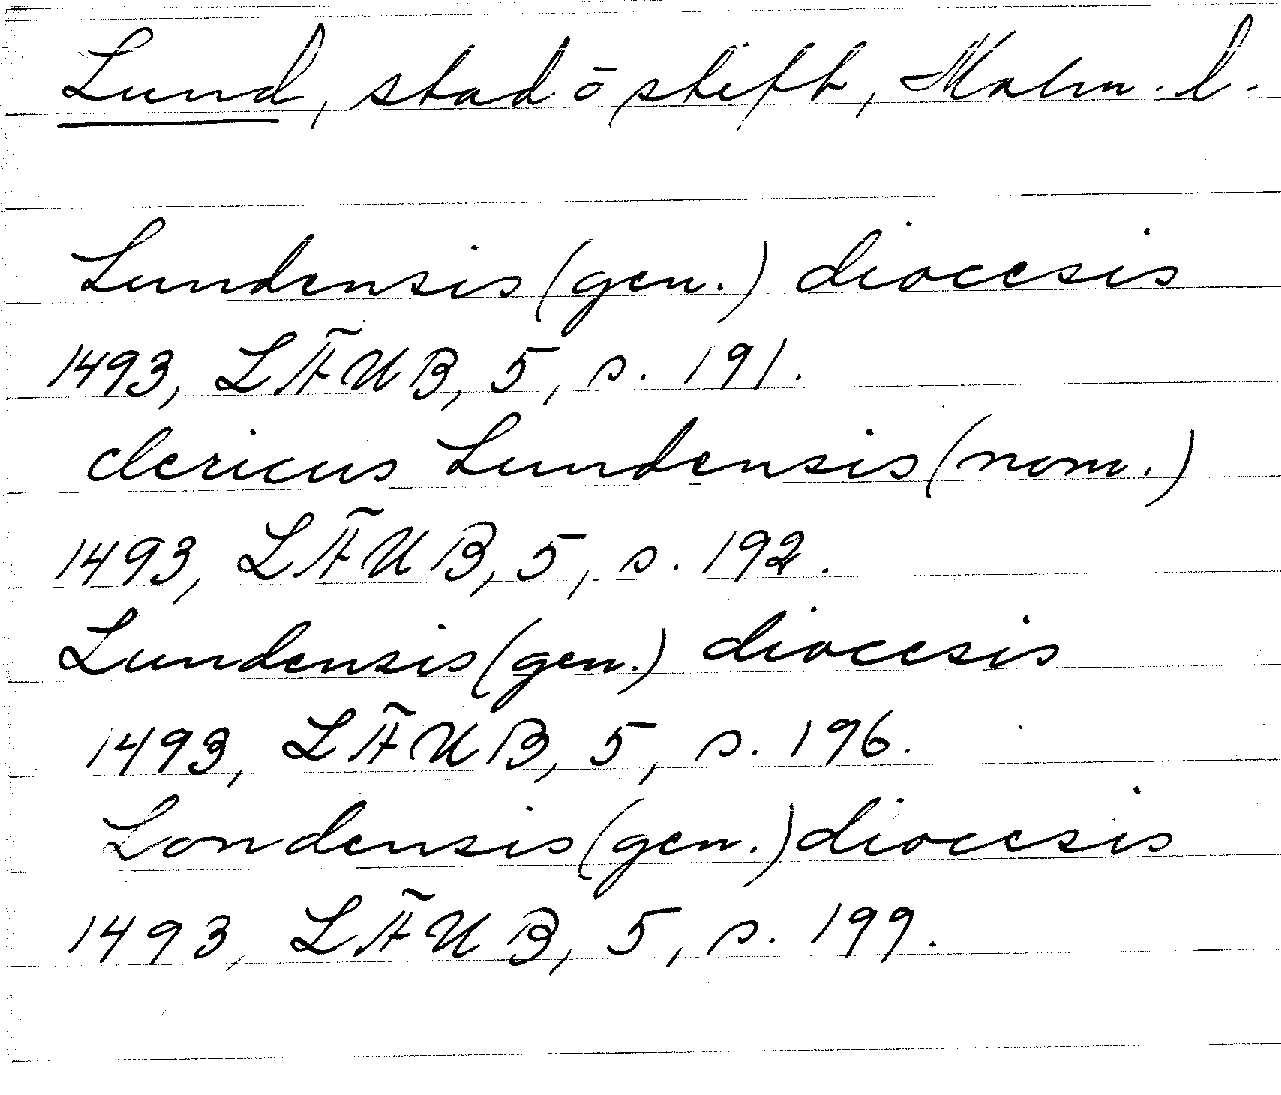 Lund, stad o stift, Malm. l.
Lundensis (gen.) diocesis
1493, LÄUB, 5, s. 191.
clericus Lundensis (nom.)
1493, LÄUB, 5, s. 192.
Lundensis (gen.) diocesis
1493, LÄUB, 5, s. 196.
Londensis (gen.) diocesis
1493, LÄUB, 5, s. 199.